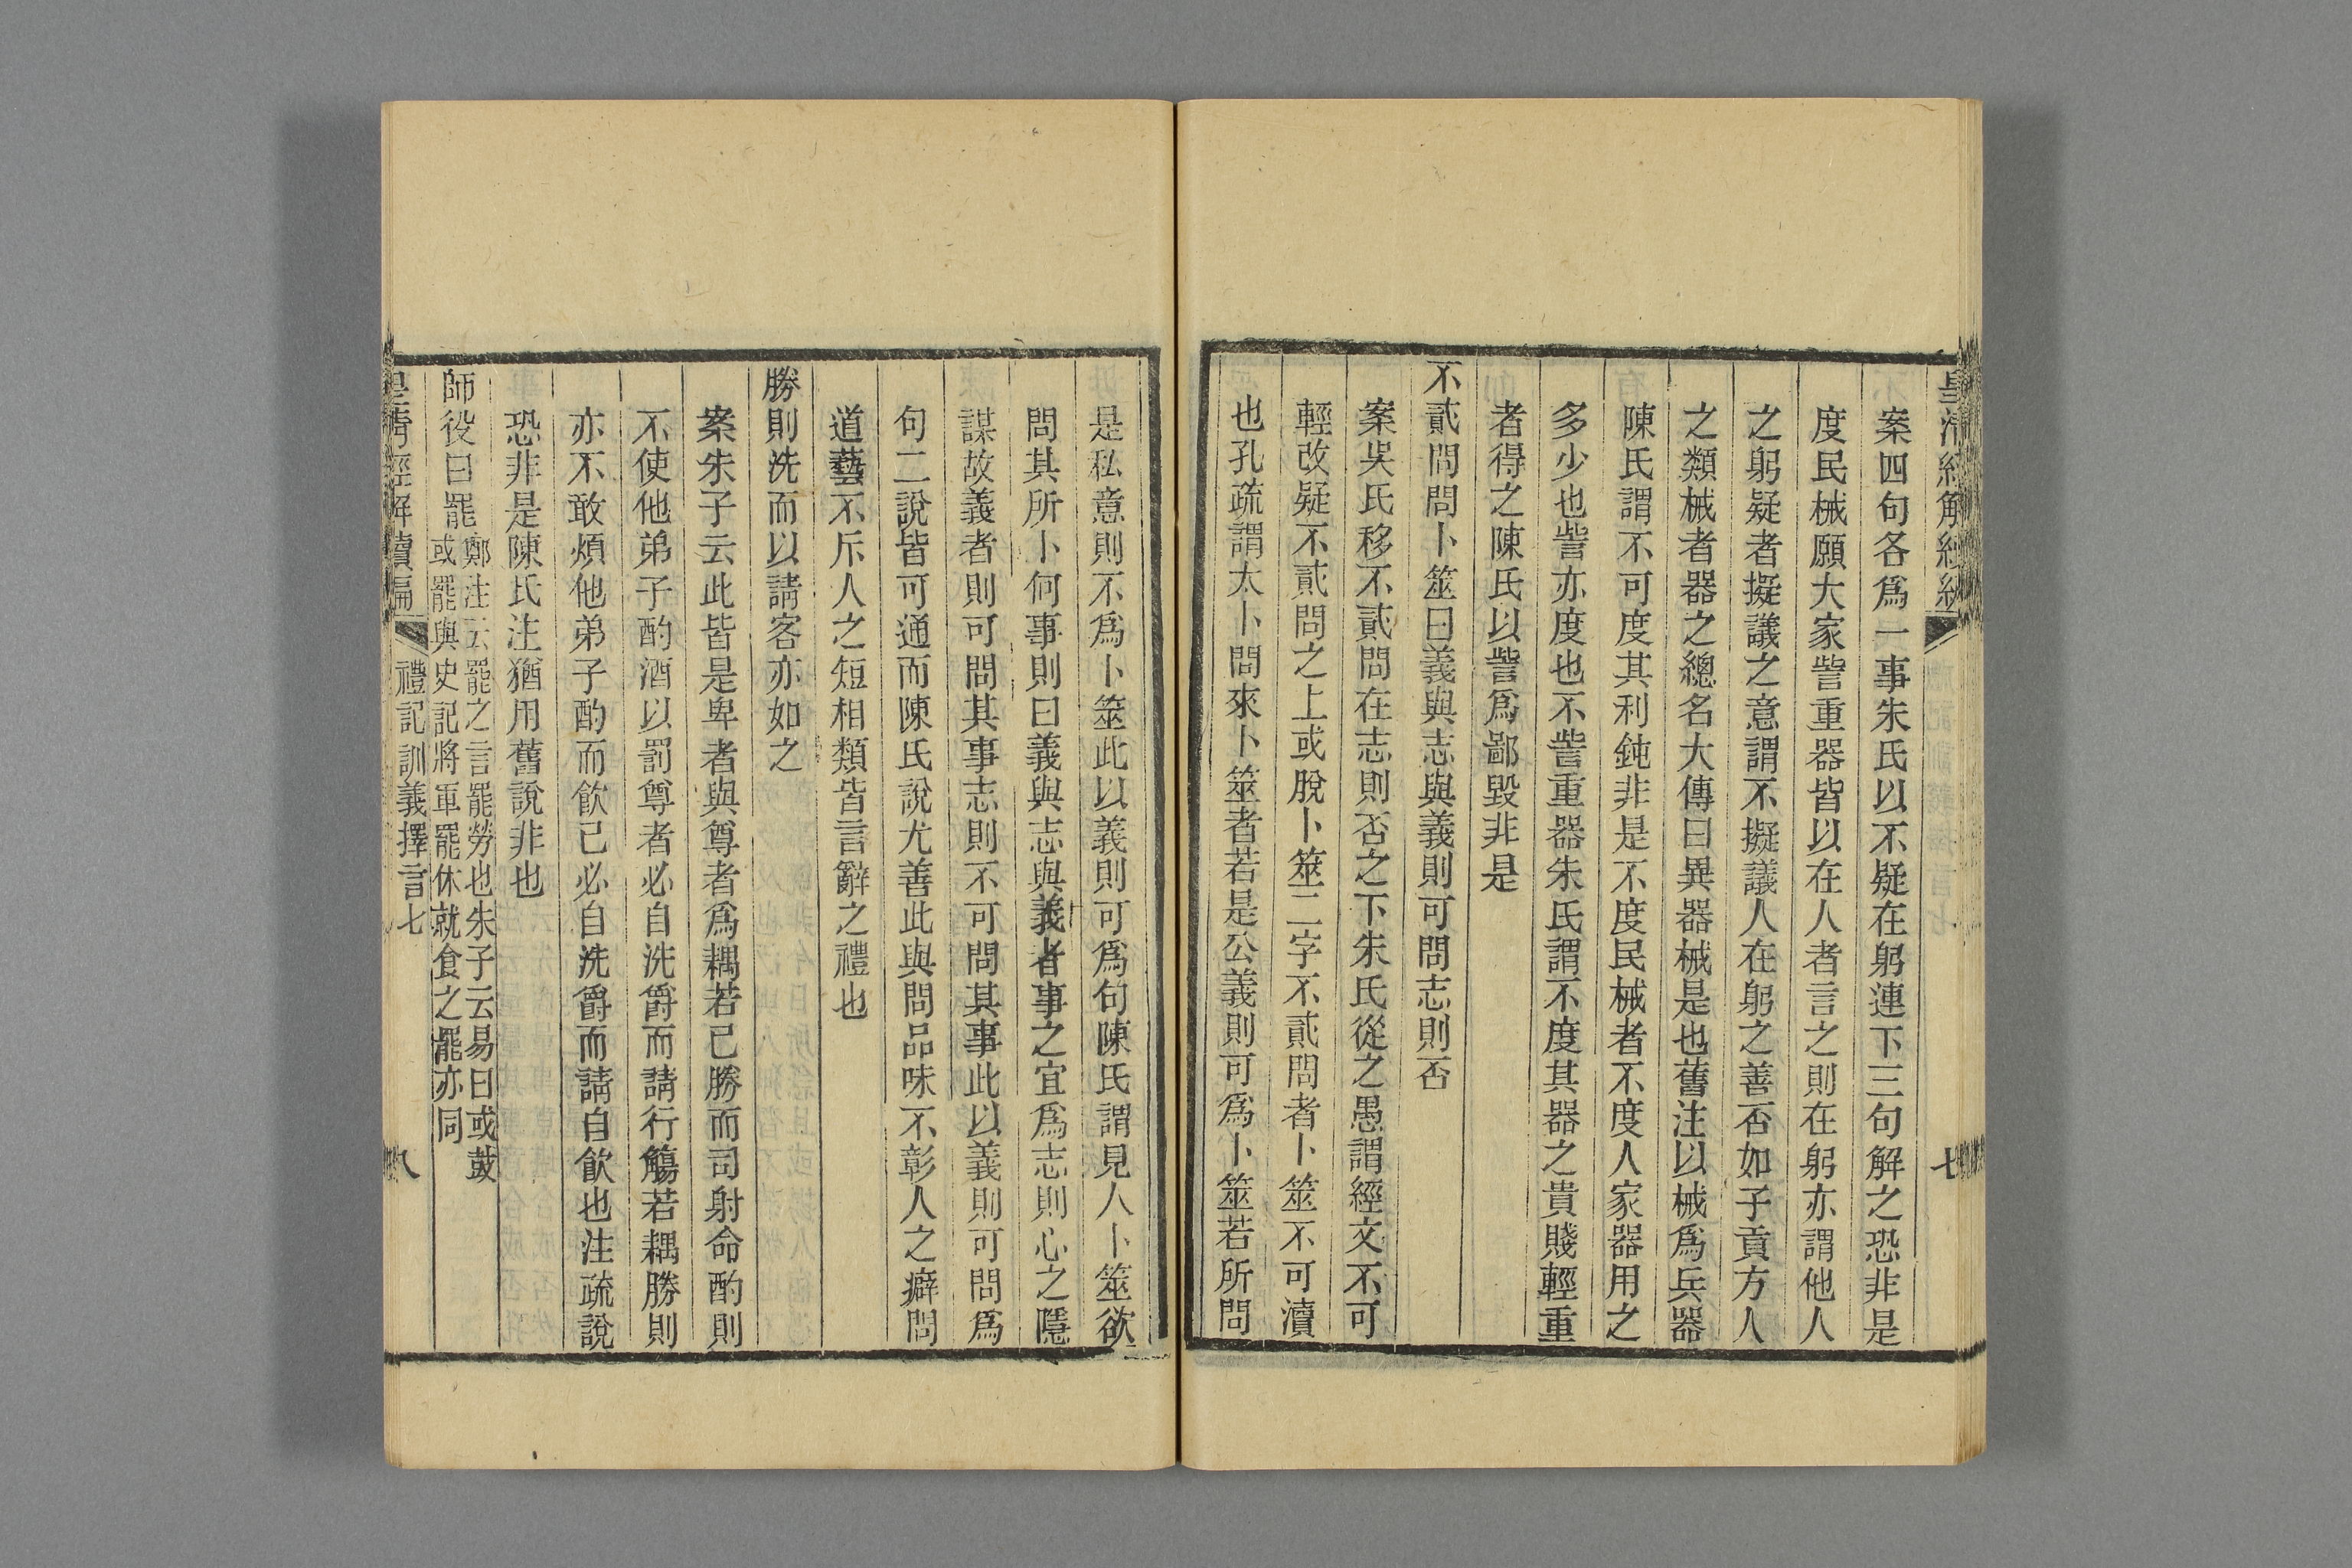 案四句各爲一事朱氏以不疑在躬連下三句解之恐非是
度民械願大家訾重器皆以在人者言之則在躬亦謂他人
之躬疑者擬議之意謂不擬議人在躬之善否如子貢方人
之類械者器之總名大傳曰異器械是也舊注以械爲兵器
陳氏謂不可度其利鈍非是不度民械者不度人家器用之
多少也訾亦度也不訾重器朱氏謂不度其器之貴賤輕重
者得之陳氏以訾爲鄙毀非是
不貳問問卜筮曰義與志與義則可問志則否
案吳氏移不貳問在志則否之下朱氏從之愚謂經文不可
輕改疑不貳問之上或脫卜筮二字不貳問者卜筮不可瀆
也孔疏謂太卜問來卜筮者若是公義則可爲卜筮若所問
是私意則不爲卜筮此以義則可爲句陳氏謂見人卜筮欲
問其所卜何事則曰義與志與義者事之宜爲志則心之隱
謀故義者則可問其事志則不可問其事此以義則可問爲
句二說皆可通而陳氏說尤善此與問品味不彰人之癖問
道藝不斥人之短相類皆言辭之禮也
勝則洗而以請客亦如之
案朱子云此皆是卑者與尊者爲耦若已勝而司射命酌則
不使他弟子酌酒以罰尊者必自洗爵而請行觴若耦勝則
亦不敢煩他弟子酌而飲己必自洗爵而請自飲也注疏說
恐非是陳氏注猶用舊說非也
師役曰罷鄭注云罷之言罷勞也朱子云易曰或鼓
或罷與史記將軍罷休就食之罷亦同
皇清經解續編 禮記訓義擇言七 八